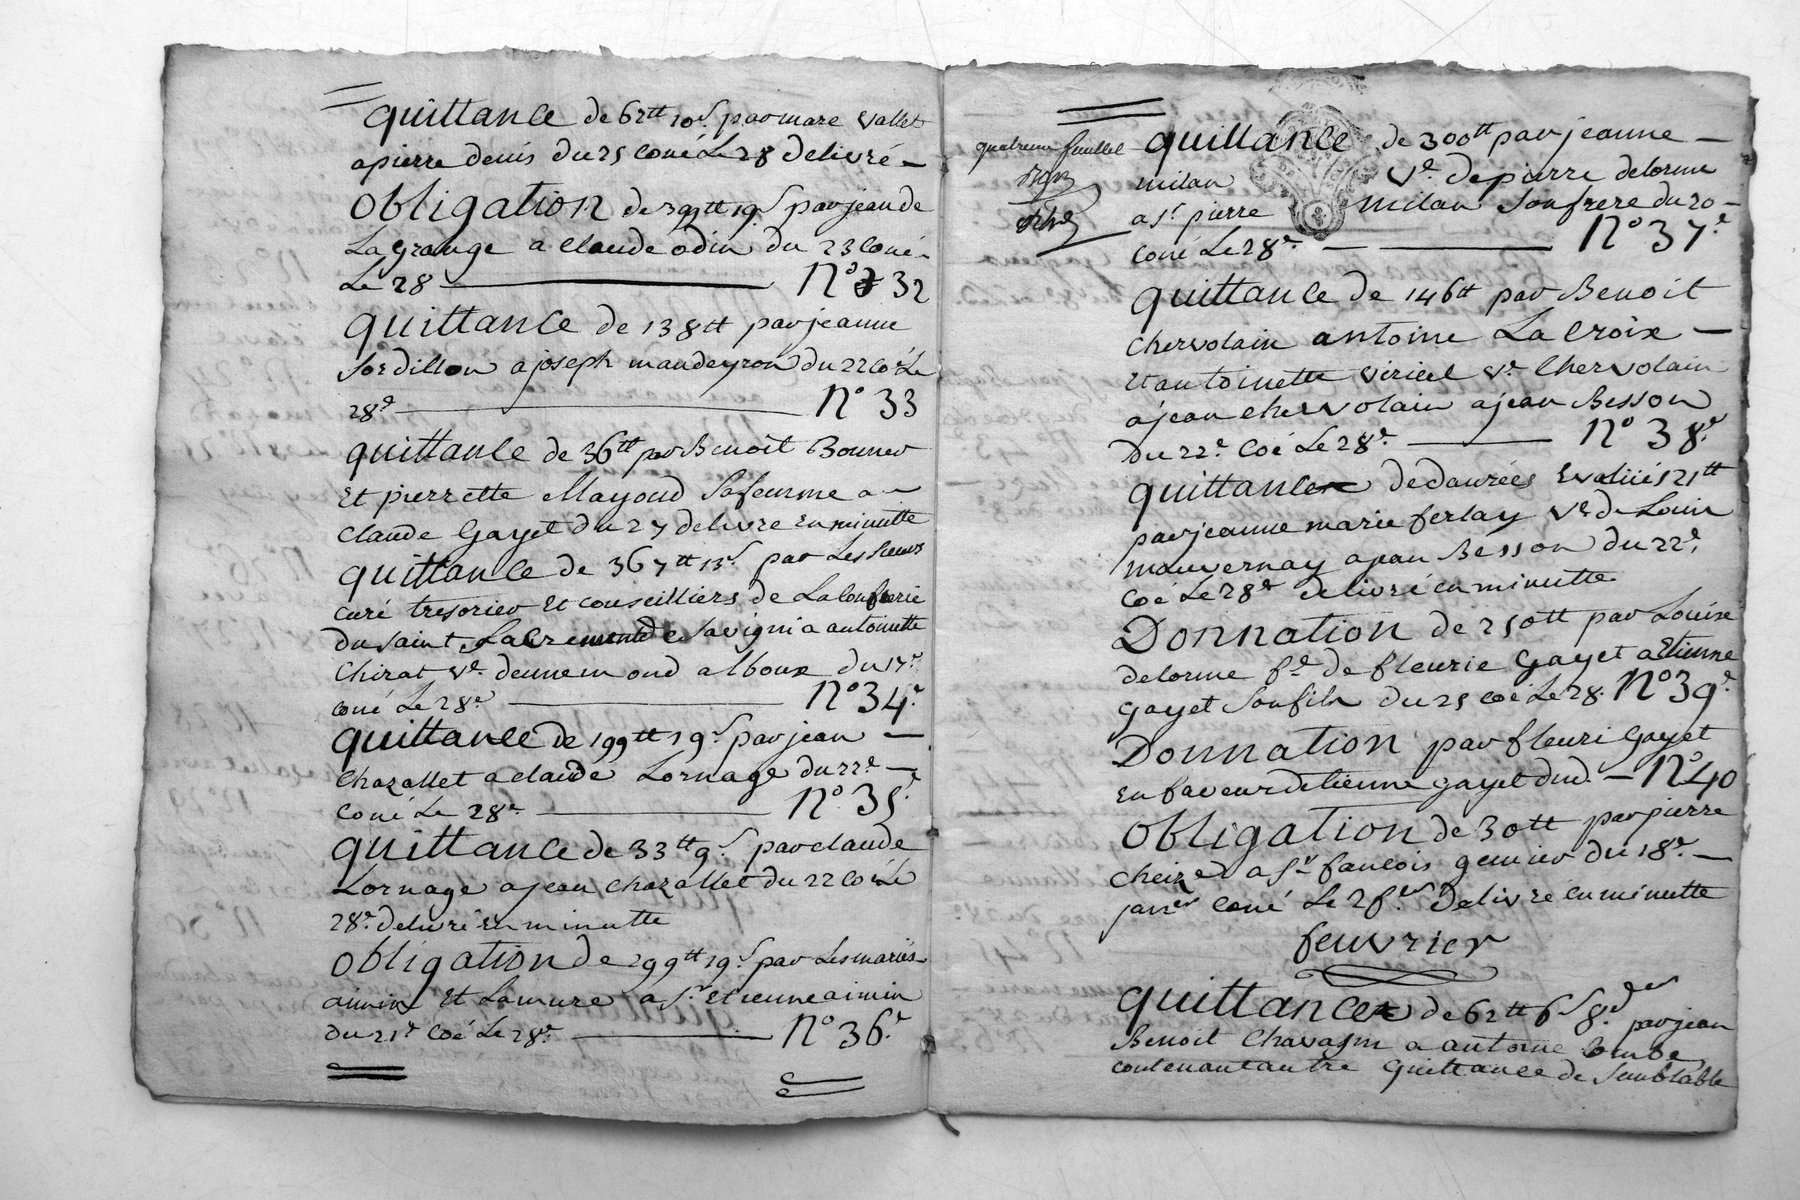 quittance de 62tt 10s par mare vallet
a pierre denis du 25 coné Le 28 delivré –
Obligation de 399tt 19s par jean de
La grange a claude odin du 23 Coné
Le 28 — N° 32
quittance de 138tt par jeanne
Sordillon a joseph mandeyron du 22 Co.é Le
28e — N° 33
quittance de 36tt par Benoit Bonner
Et pierrette Mayoud Sa femme a –
Claude Gayet du 27 delivre En minutte
quittance de 367tt 13s par Les sieurs
curé tresorier Et conseilliers de La Confrerie
du Saint Sacrement de Savigni a antoinette
Chirat ve. dennemond alboux du 17e
coné Le 28e — N° 34e
quittance de 199tt 19s par jean –
Chazallet a claude Lornage du 22e –
Coné Le 28e — N° 35e
quittance de 33tt 9s par claude
Lornage a jean chazallet du 22 Coé Le
28e delivré En minutte
obligation de 299tt 19s par Les mariés
aimin Et Lamure a Sr. Etienne aimin
du 21e Coé Le 28e — N° 36e
quatrieme feuillet
quittance de 300tt par jeanne –
milan ve. de pierre delorme
a Sr pierre milan Son frere du 20 –
coné Le 28e — N° 37e
quittance de 146tt par Benoit
Chervolain antoine La Croix –
Et antoinette viricel ve. Chervolain
a jean Chervolain a jean Besson
Du 22e Coé Le 28e — N° 38e
quittance de danrées Evalüés 21tt
par jeanne marie ferlay ve de Louis
mouvernay a jean Besson du 22e
Coé Le 28e delivré en minutte
Donnation de 250tt par Louise
delorme fe de fleurie Gayet a Etienne
Gayet Son fils du 25 Coé Le 28. N° 39e
Donnation par fleuri Gayet
En faveur d'Etienne gayet dud. – N° 40
Obligation de 30tt par pierre
cheize a Sr. fancois genier du 18e –
janer coné Le 28er Delivré en minutte
feuvrier
quittance de 62tt 6s 8d. par jean
Benoit Chavasin a antoine
contenant autre quittance de Semblable